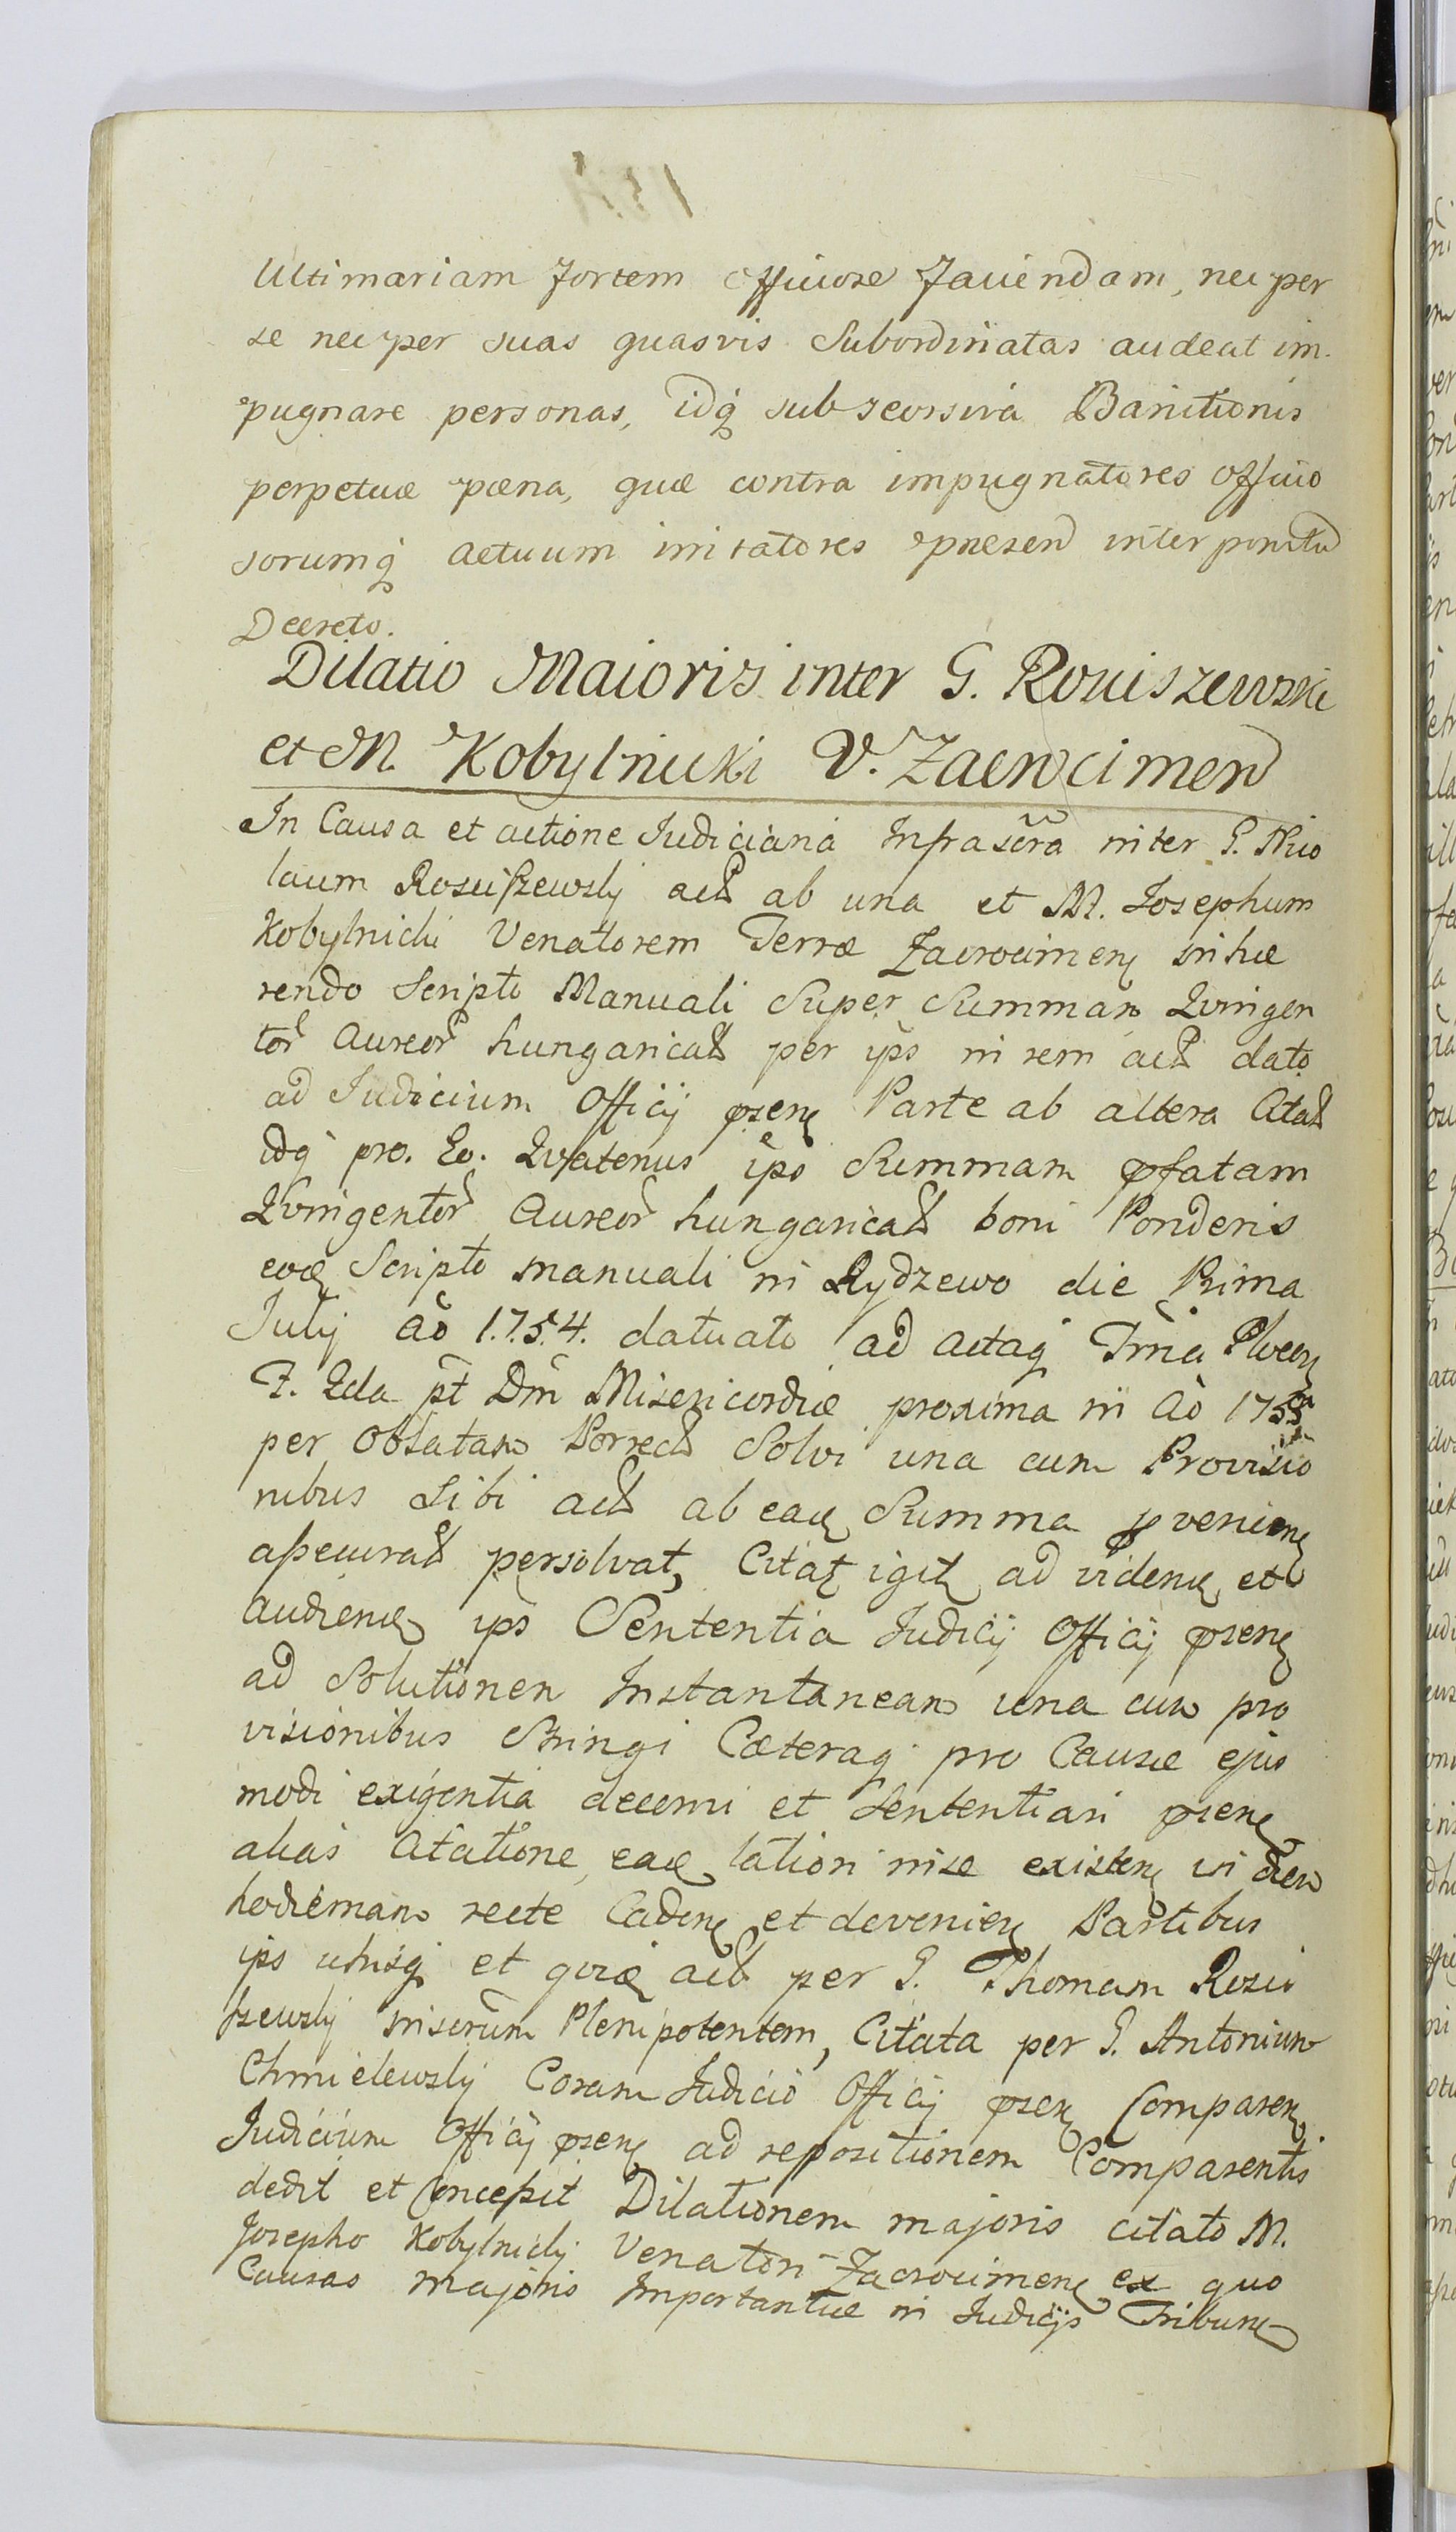 Ultimariam fortem officiose faciendam, nec per
se nec per suas quasvis Subordinatas audeat im-
pugnare personas, idq̃ sub seorsiva Banitionis
perpetuæ pæna, quæ contra impugnatores officio
sorumq̃ actuum irritatores præsen interponitu
Decreto.
Dilatio Maioris inter G. Rosciszewski
et M. Kobylnicki V. Zacrocimen
In Causa et actione Judiciaria Infrascra inter G. Nico
laum Rosciszewsky act ab una et M. Josephum
Kobylnicki Venatorem Terræ Zacrocimen inhæ
rendo Scripto Manuali Super Summam Quingen
tor Aureor hungarical per ips in rem act dato
ad Judicium Officij psen Parte ab altera Citat
idq pro. Eo. Quatenus ips Summam pfatam
Quingentor Aureor hungarical boni Ponderis
Scripto manuali in Rydzewo die Prima
July Ao 1.7.5.4. datuato ad actaq Trria Plocen
F. 2da pt Dm Misericordiæ proxima in Ao 1755
per Oblatam Porrect Solvi una cum Provisio
nibus Sibi act ab eac Summa pvenien
assecurat persolvat, Citat igit ad viden et
audien ips Sententia Judicij Officij psen
ad Solutionem Instantaneam una cum pro
visionibus Stringi Cæteraq pro Causæ ejus
modi exigentia decerni et Sententiari psen
alias Citatione, eac lation nise existen in diem
hodiernam recte Caden et devenien Partibus
ips utrisq et act per G. Thomam Rosci
szewsky Plenipotentem, Citata per G. Antonium
Chmielewsky Coram Judicio Officij psen Comparen
Judicium Officij psen ad repositionem Comparentis
dedit et Concessit Dilationem majoris citato M.
Josepho Kobylnicky Venatori Zacrocimen ex quo
Causas majoris Importantiæ in Judicijs Tribun